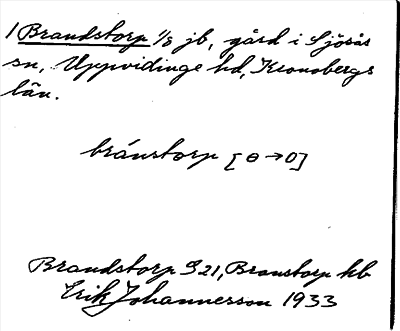 1 Brandstorp 1/8 jb, gård i Sjösås
sn, Uppvidinge hd, Kronobergs
län.
bránstorp [ɵ→o]
Brandstorp S21, Branstorp kb
Erik Johannesson 1933